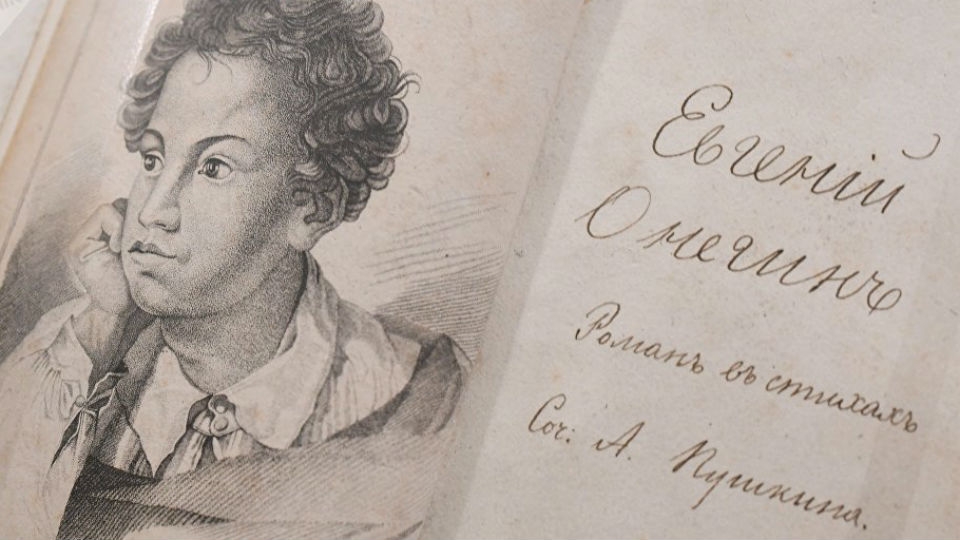 Евгеній
Онегинъ
Романъ въ стихахъ
Соч: А. Пушкина.